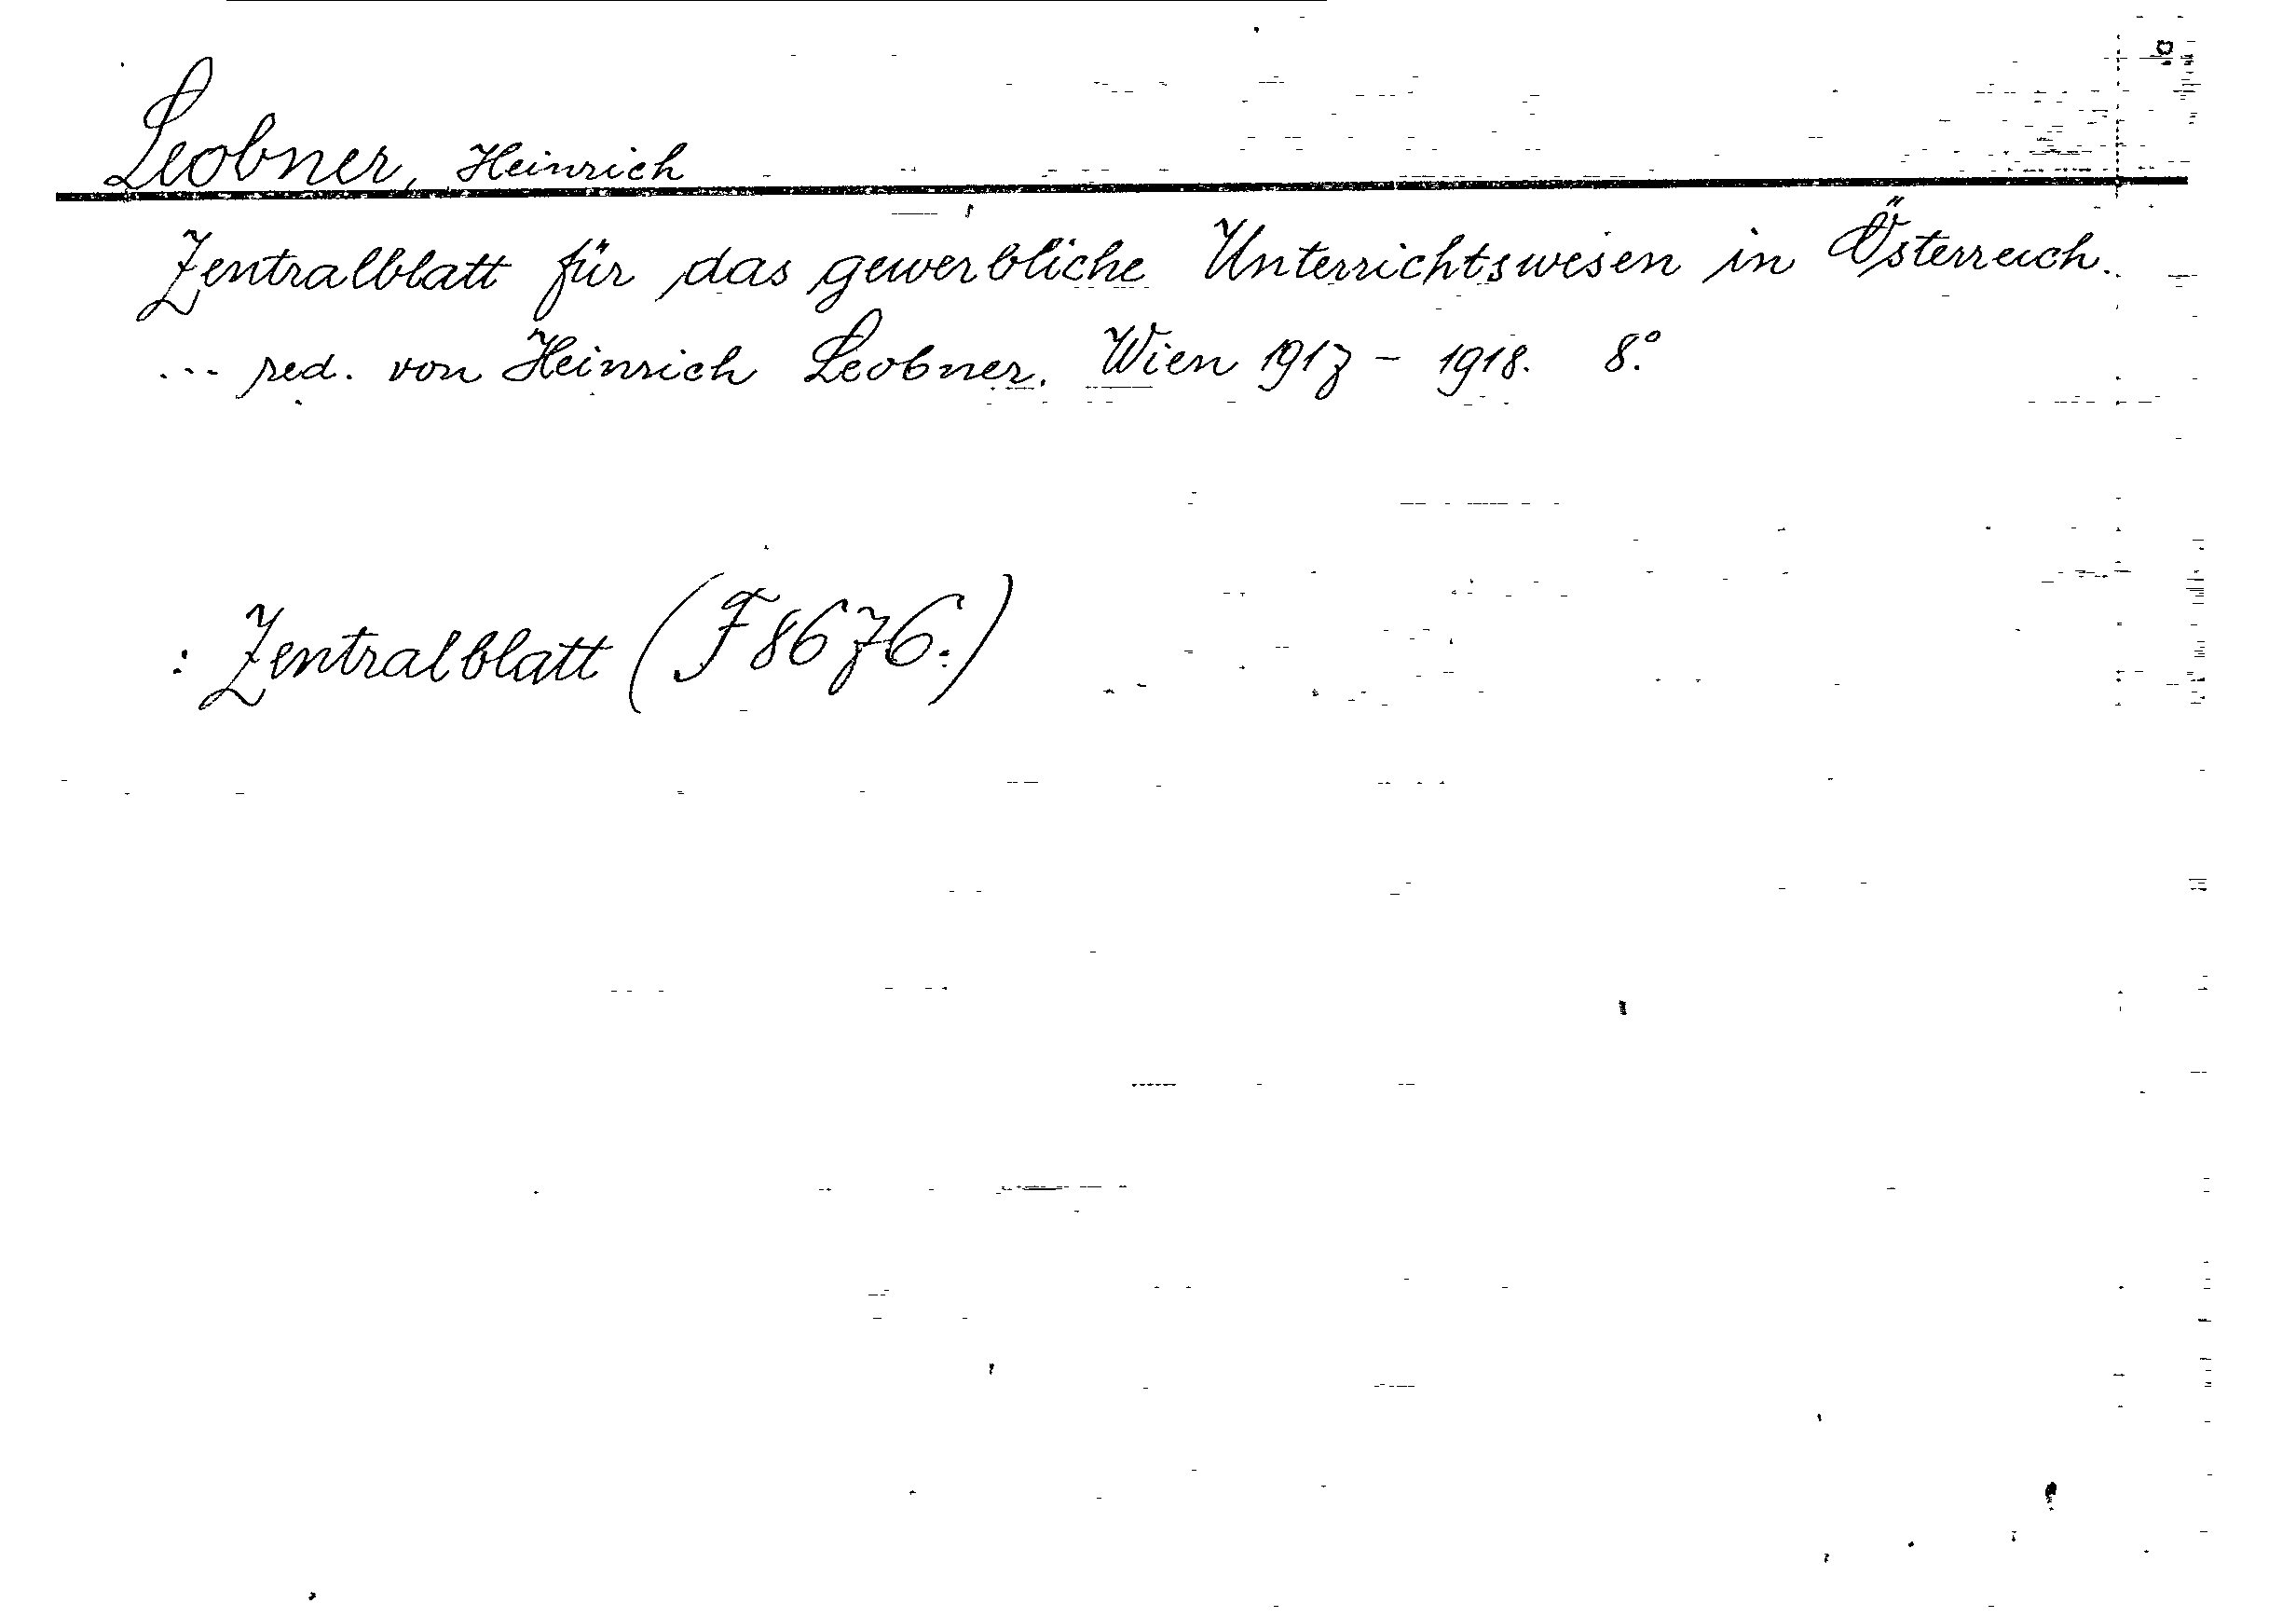 Leobner, Heinrich
Zentralblatt für das gewerbliche Unterrichtswesen in Österreich.
... red. von Heinrich Leobner. Wien 1917 - 1918. 8.°
: Zentralblatt (F 8676.)